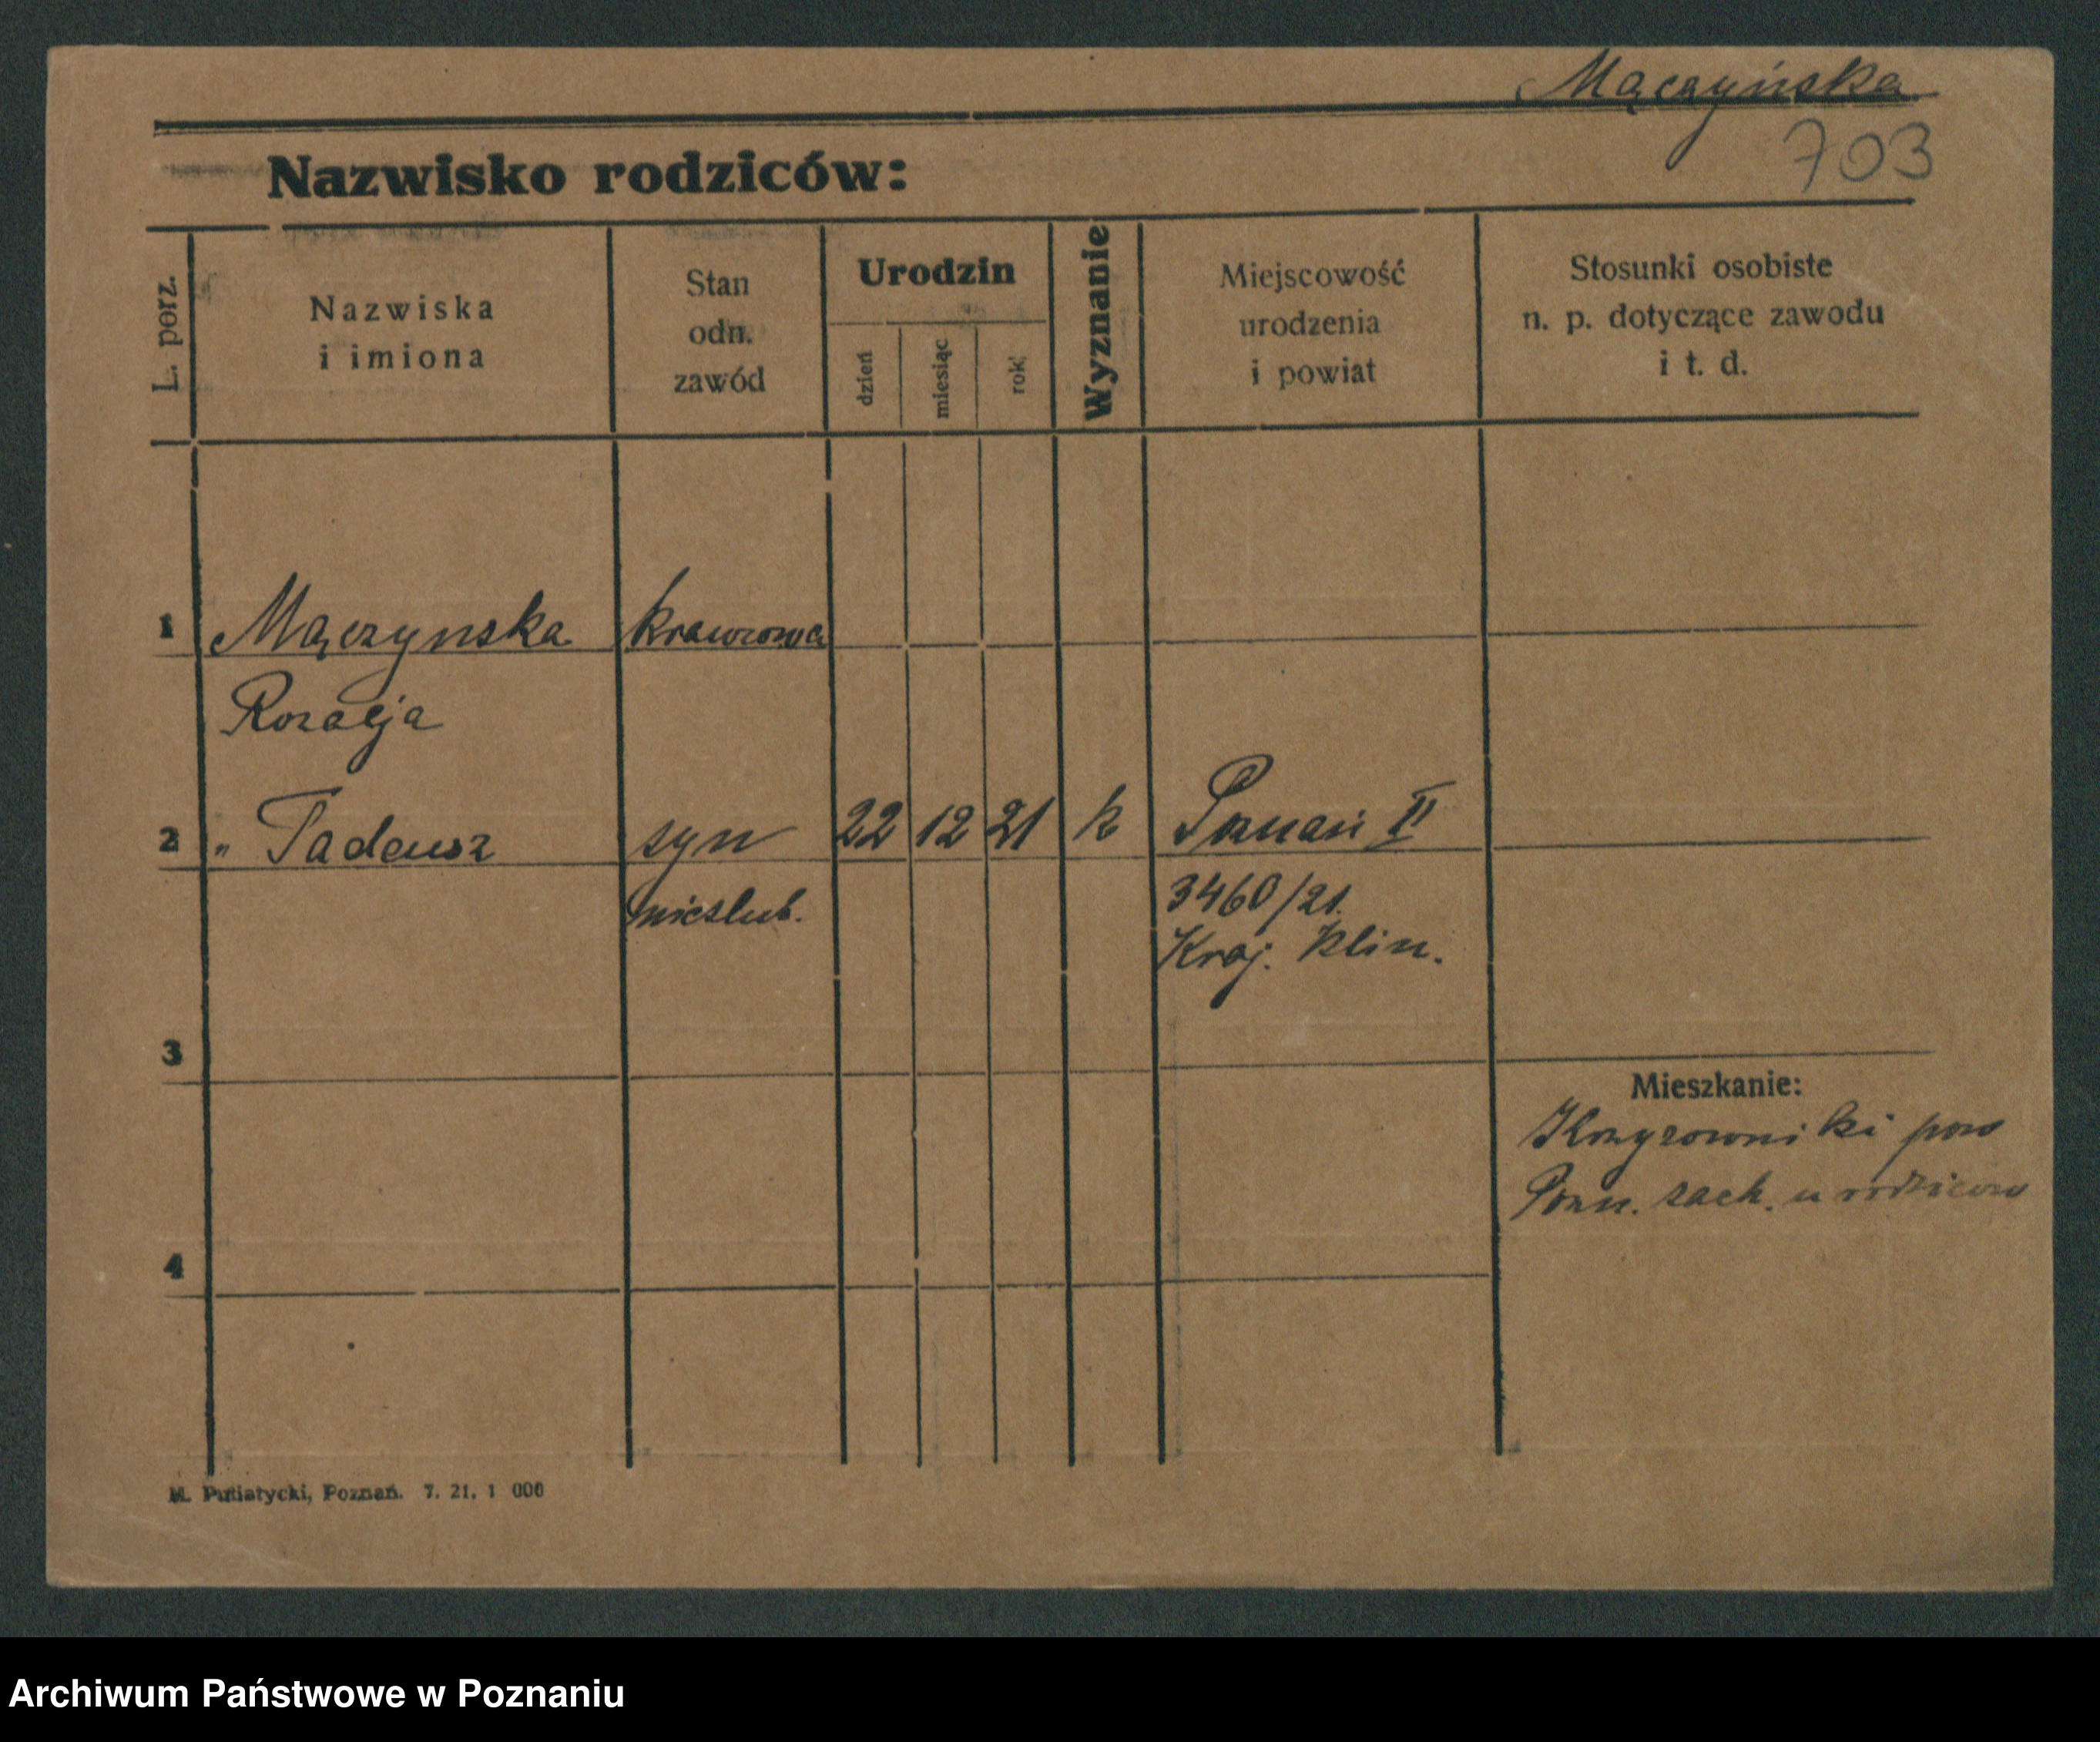 Mączyńska
703
Nazwisko rodziców:
L. porz.
Nazwiska
i imiona
Stan
odn.
zawód
Urodzin
dzień
miesiąc
rok
Wyznanie
Miejscowość
urodzenia
i powiat
Stosunki osobiste
n. p. dotyczące zawodu
i t. d.
1 Mączynska krawcowa
Rozalja
2 " Tadeusz syn 22 12 21 k Poznań II
nieslub. 3460/21.
Kraj. klin.
3
Mieszkanie:
Krzyzowniki pow
Pozn. zach. u rodzicow
4
M. Putiatycki, Poznań. 7. 21. 1 000
Archiwum Państwowe w Poznaniu